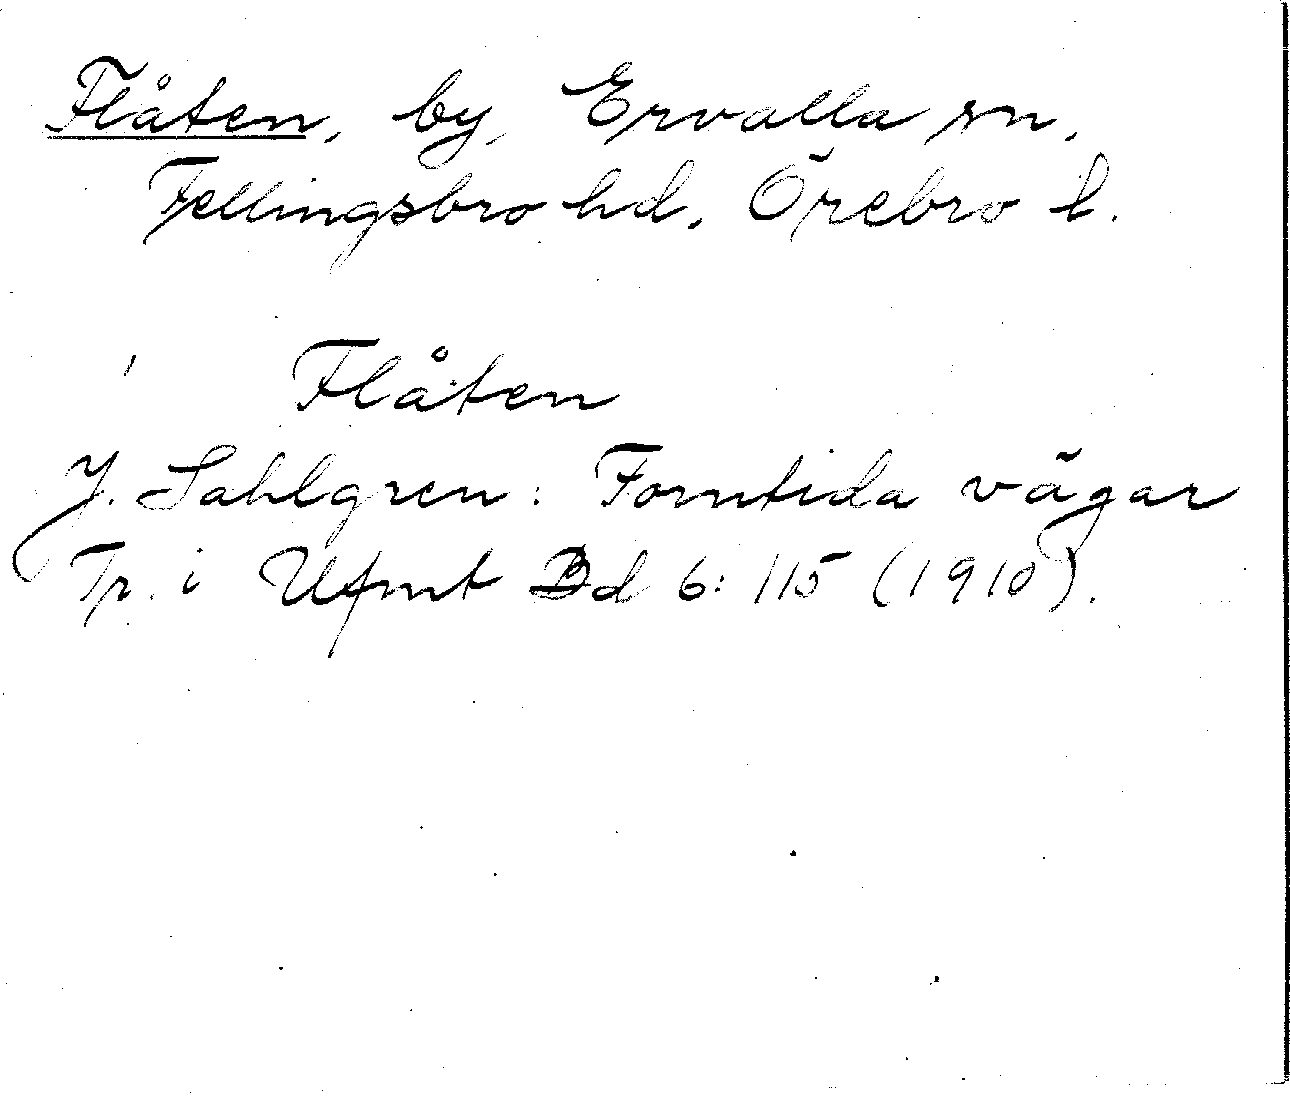 Flåten, by, Ervalla sn,
Fellingsbro hd, Örebro l.
Flåten
J. Sahlgren: Forntida vägar
Tr. i Ufmt Bd 6: 115 (1910).